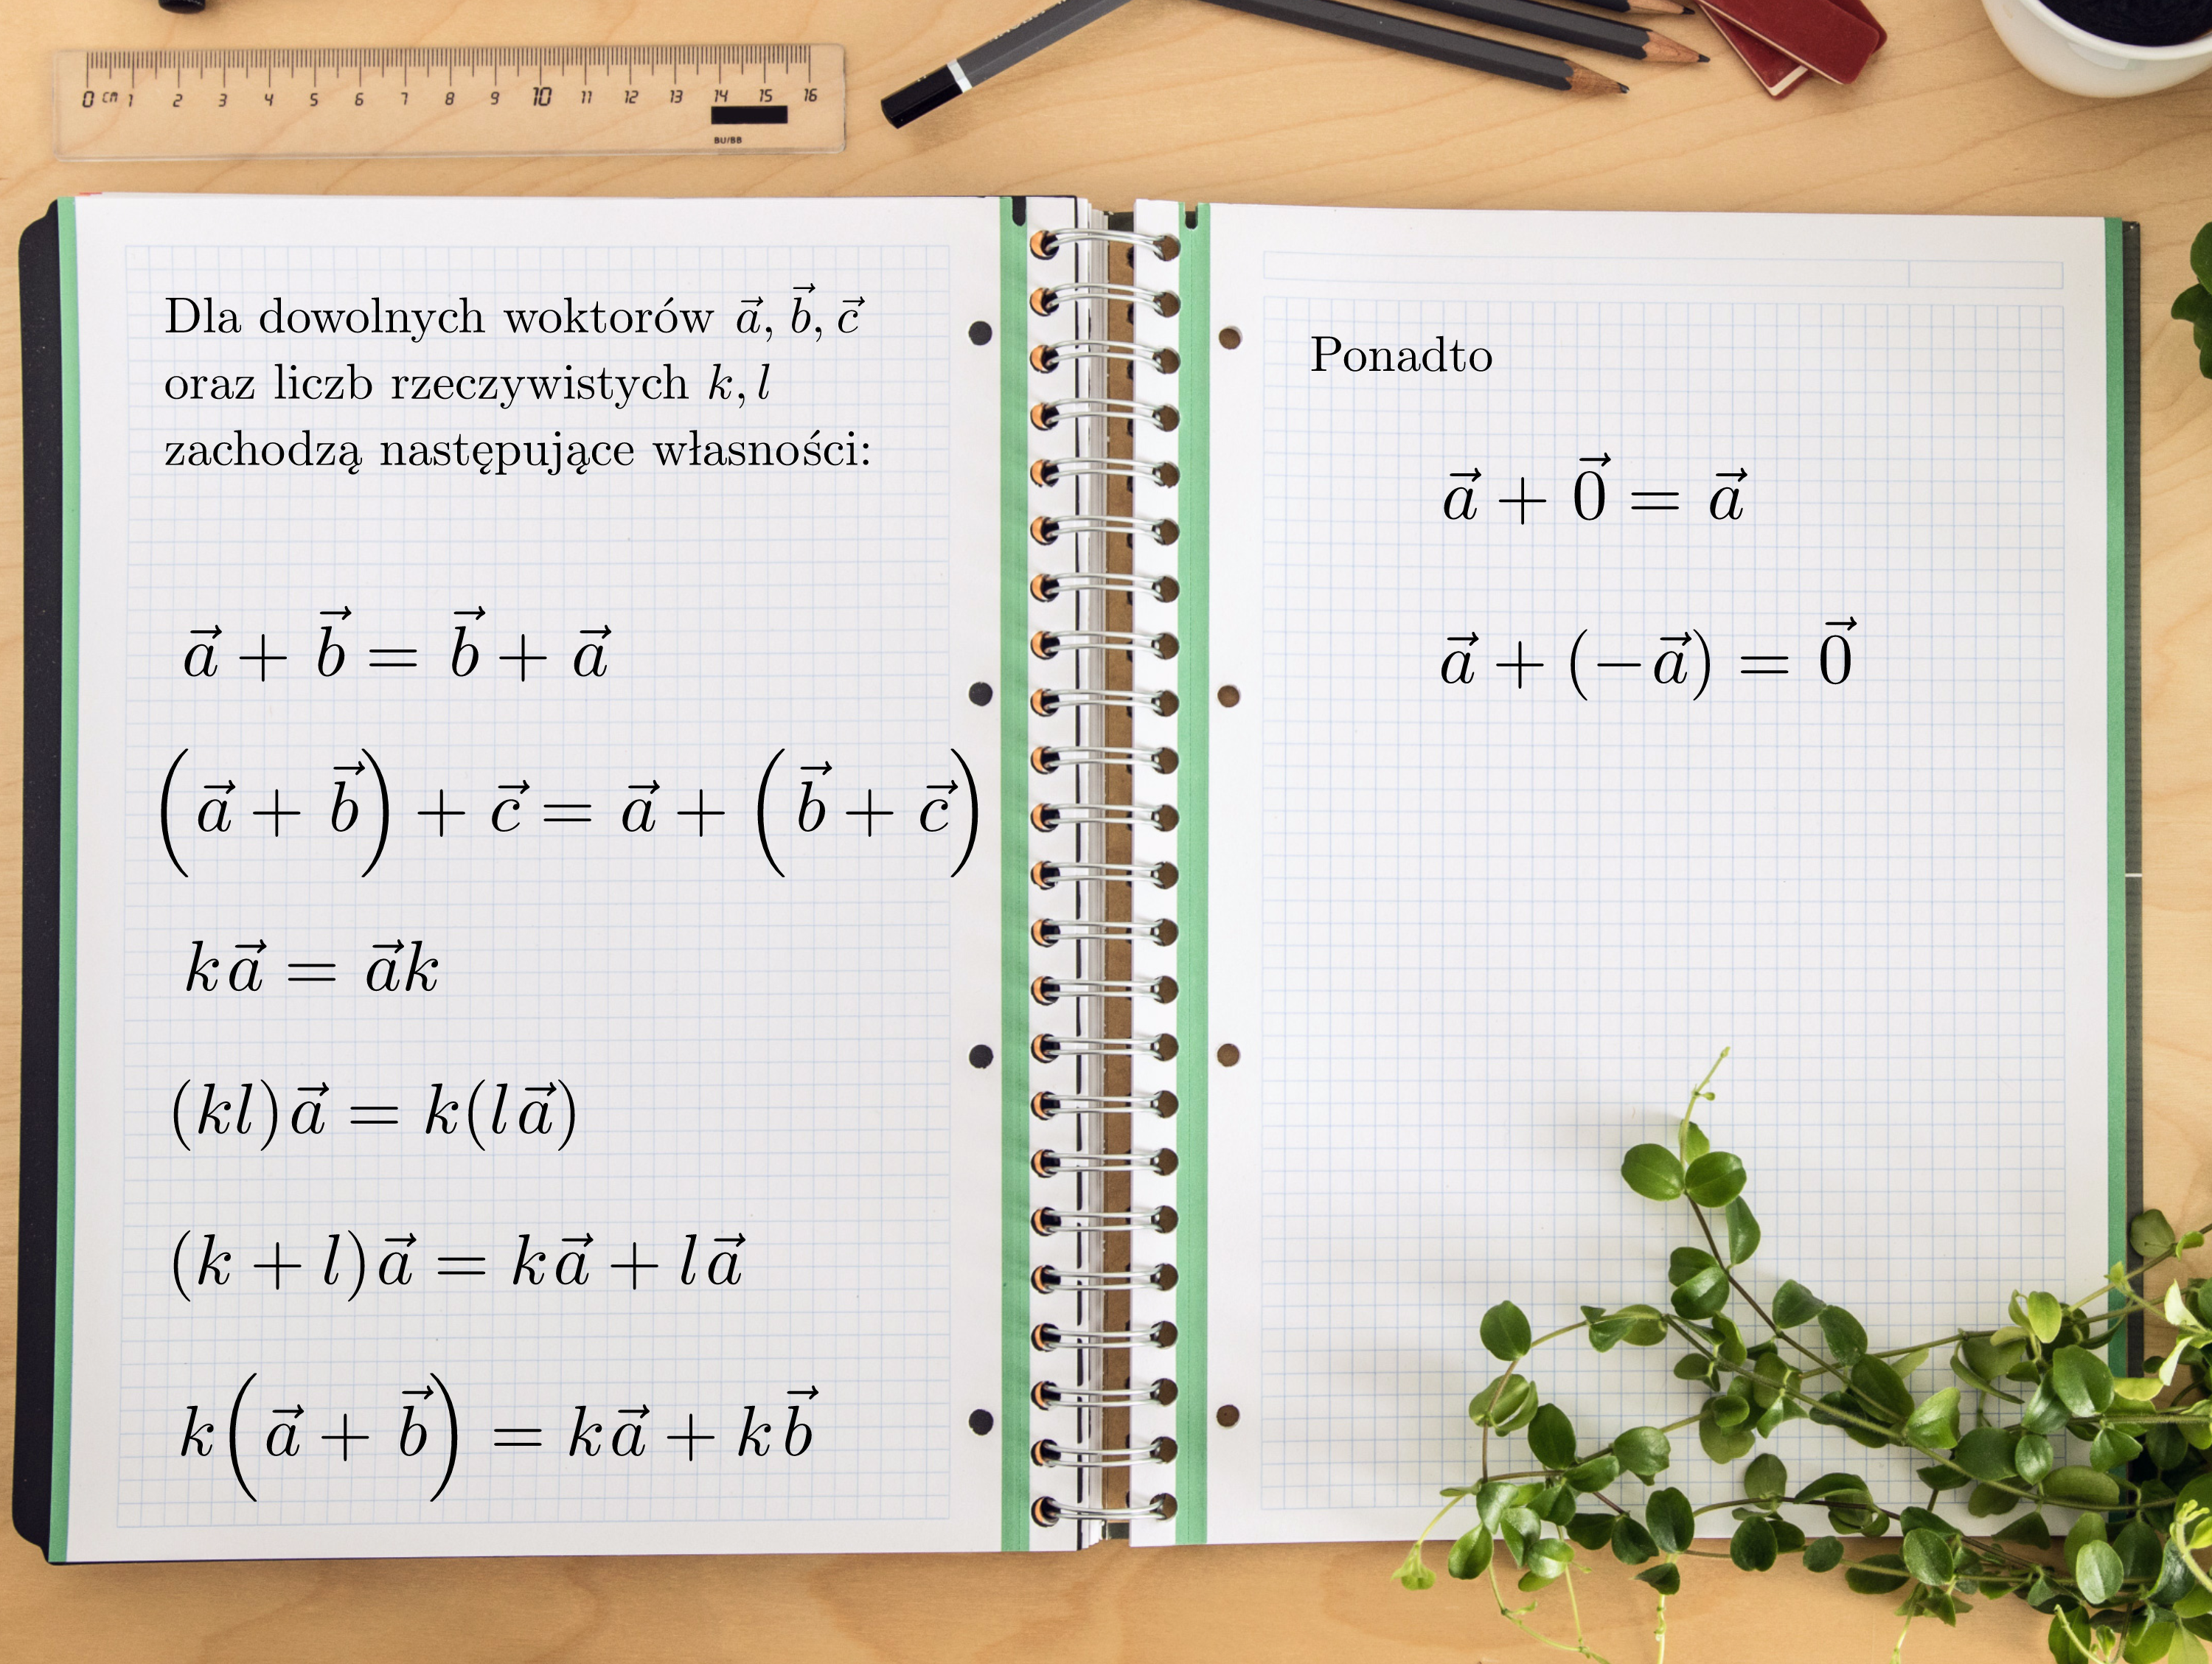 0 cm 1 2 3 4 5 6 7 8 9 10 11 12 13 14 15 16
BU/BB
Dla dowolnych woktorów $\vec{a}, \vec{b}, \vec{c}$
oraz liczb rzeczywistych $k, l$
zachodzą następujące własności:
$\vec{a} + \vec{b} = \vec{b} + \vec{a}$
$\left(\vec{a} + \vec{b}\right) + \vec{c} = \vec{a} + \left(\vec{b} + \vec{c}\right)$
$k\vec{a} = \vec{a}k$
$(kl)\vec{a} = k(l\vec{a})$
$(k + l)\vec{a} = k\vec{a} + l\vec{a}$
$k\left(\vec{a} + \vec{b}\right) = k\vec{a} + k\vec{b}$
Ponadto
$\vec{a} + \vec{0} = \vec{a}$
$\vec{a} + (-\vec{a}) = \vec{0}$